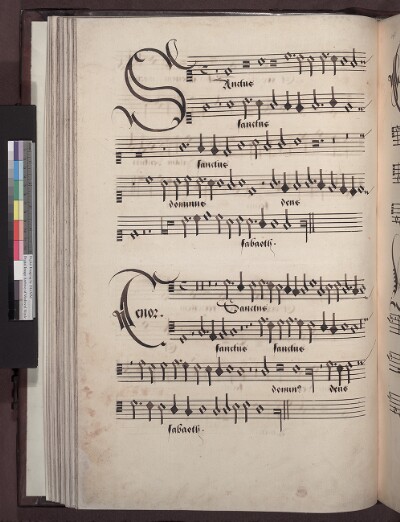 Sanctus
sanctus
sanctus
dominus deus
sabaoth.
Tenor.
Sanctus
sanctus sanctus
domin9 deus
sabaoth.